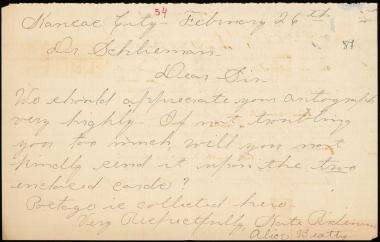 54
City February 26th
87
Dr Schlieman
Dear Sir
We should appreciate your autograph
very highly. If not troubling
you too much will you not
kindly send it upon the two
enclosed cards?
Postage is collected here.
Very Respectfully,
Alice Beatty